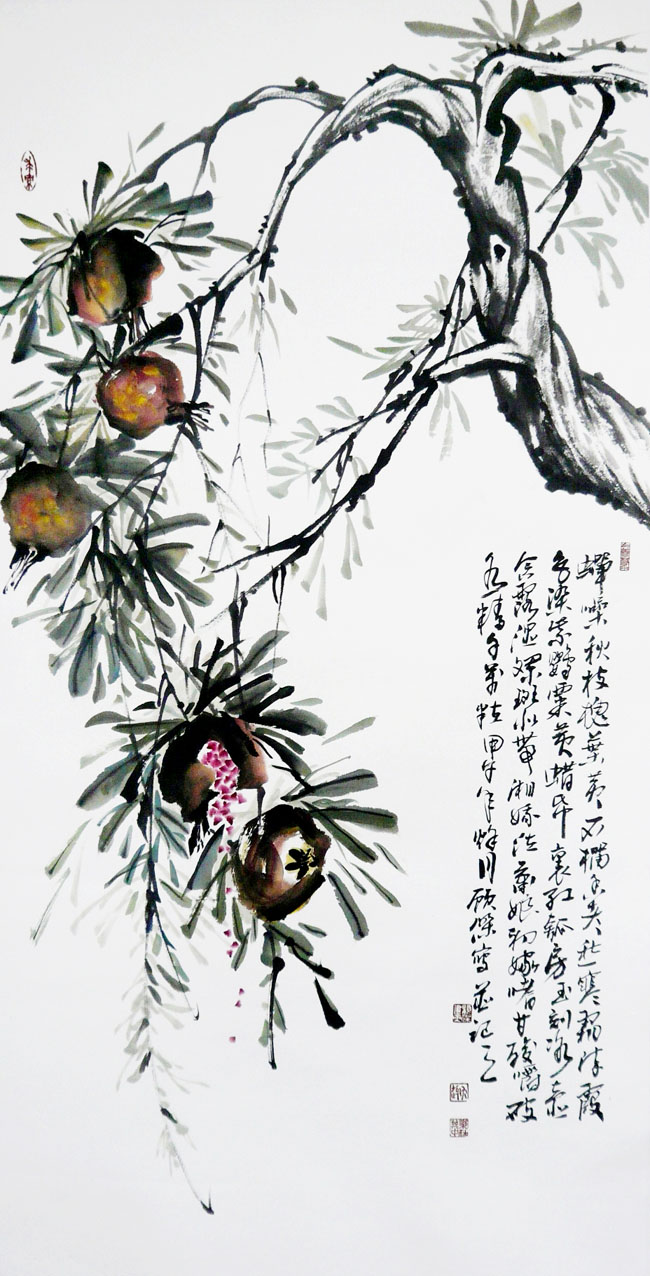 蟬噪秋枝槐葉黄石榴香老愁寒霜流霞
包染紫鸚粟黄蜡纸裹红瓠房玉刻冰壶
含露湿斓斑似带湘娥泣萧娘初嫁嗜甘酸嚼破
水精千萬粒甲午年月寫並记之